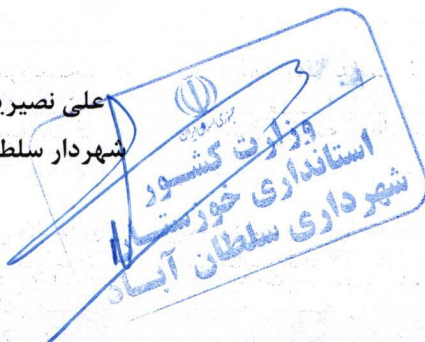 علی نصیری
شهردار سلطا
جمهوری اسلامی ایران
وزارت کشور
استانداری خوزستان
شهرداری سلطان آباد